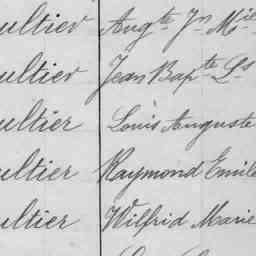 ultier Augte Jn Mie
ultier Jean Bapte Ls
ultier Louis Auguste
ultier Raymond Emile
ultier Wilfrid Marie